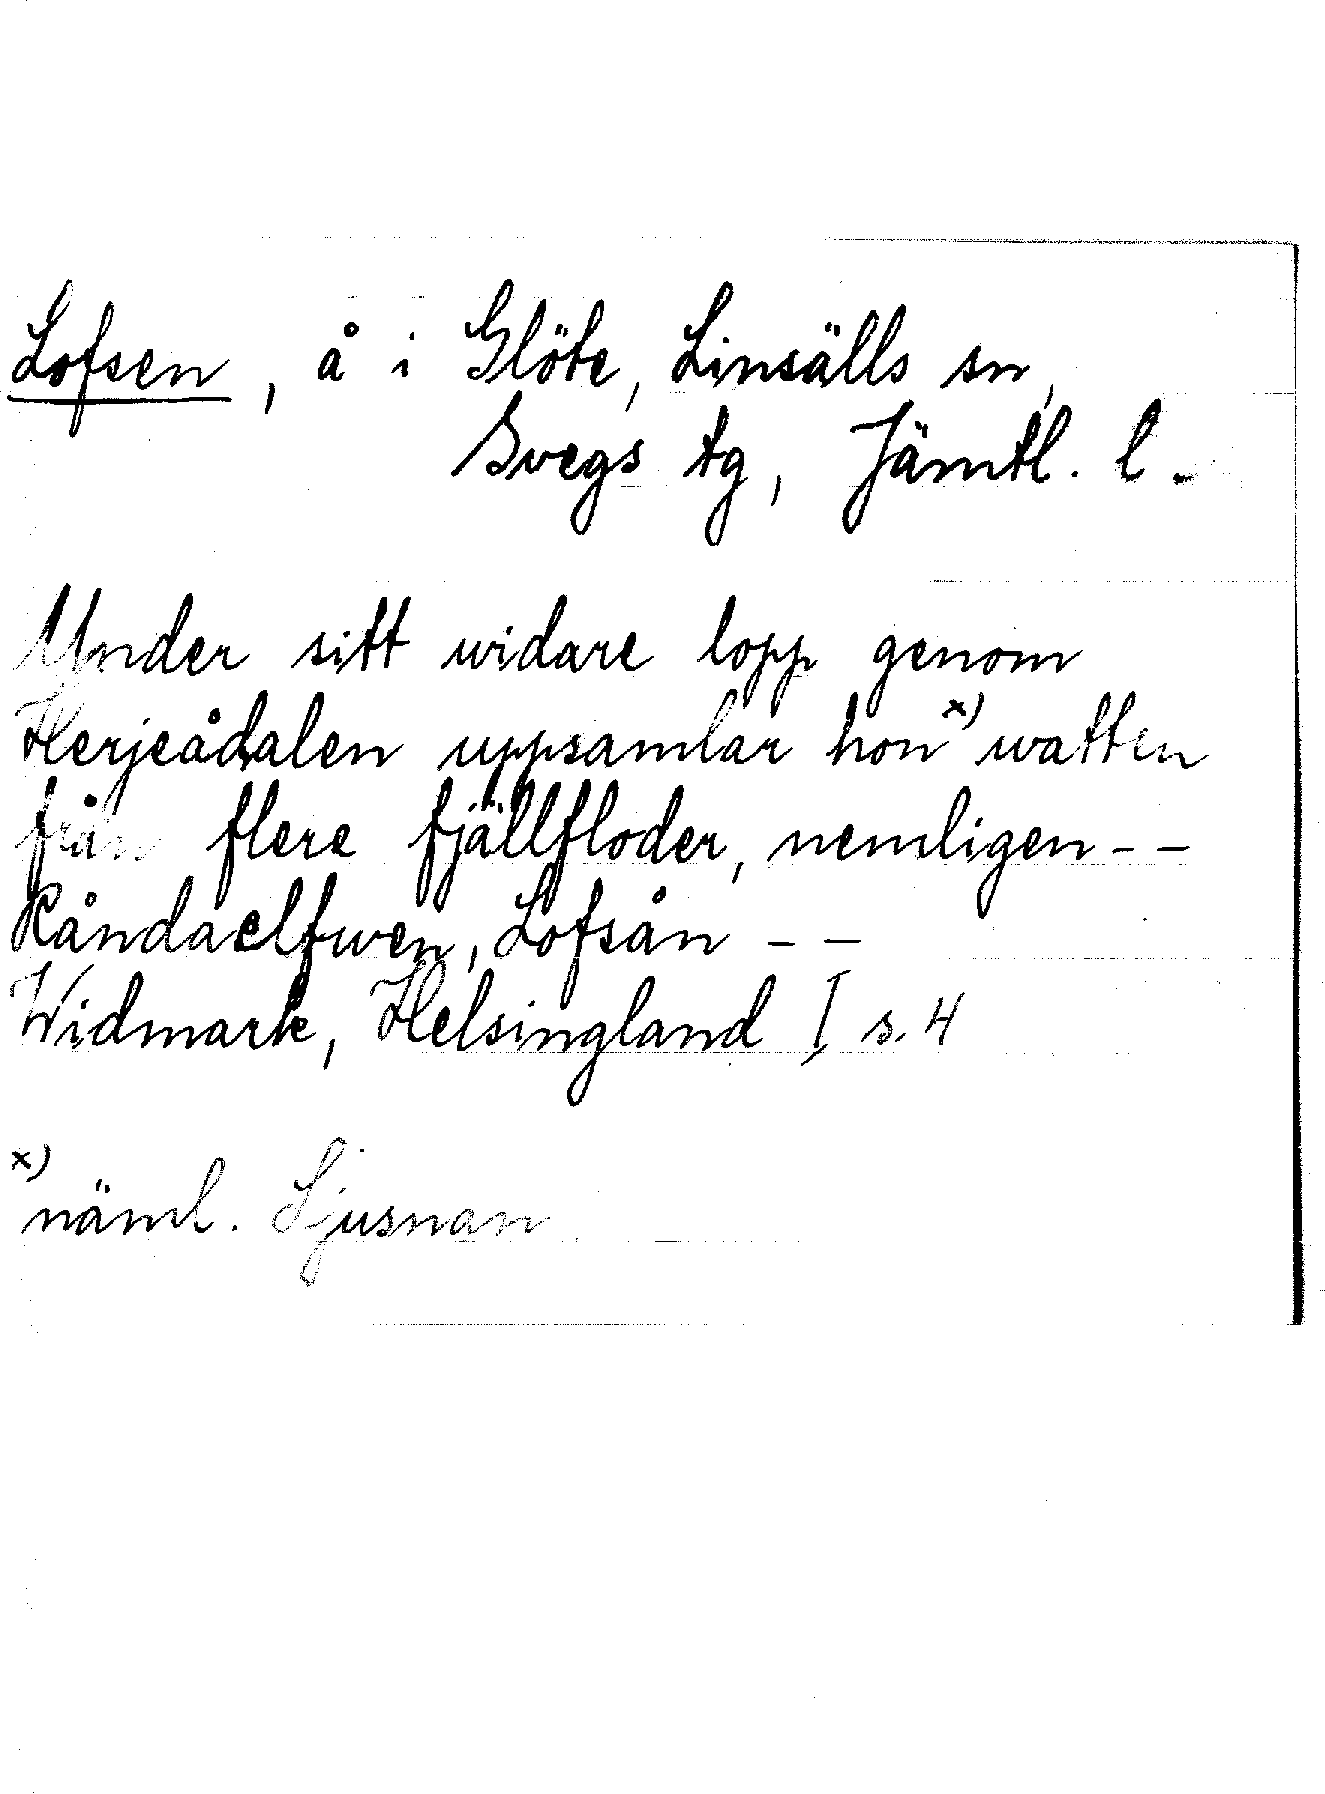 Lofsen, å i Glöte, Linsälls sn,
Svegs tg, Jämtl. l.
Under sitt widare lopp genom
Herjeådalen uppsamlar hon x) watten
från flere fjällfloder, nemligen - -
Råndaelfwen, Lofsån - -
Widmark, Helsingland I s. 4
x)
näml. Ljusnan